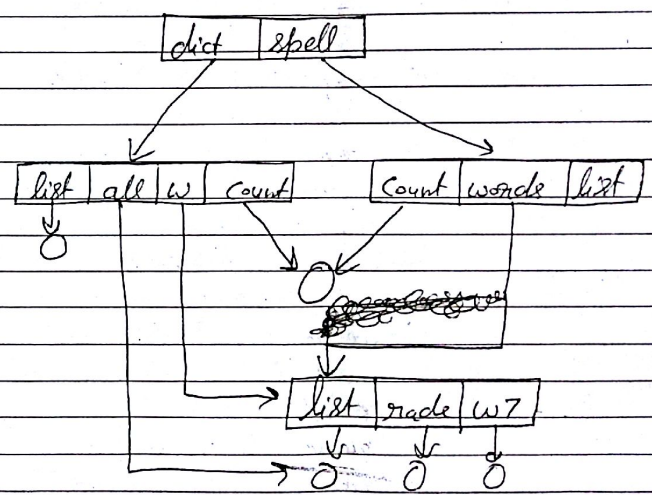 dict spell
list all w count
count words list
list rade w7